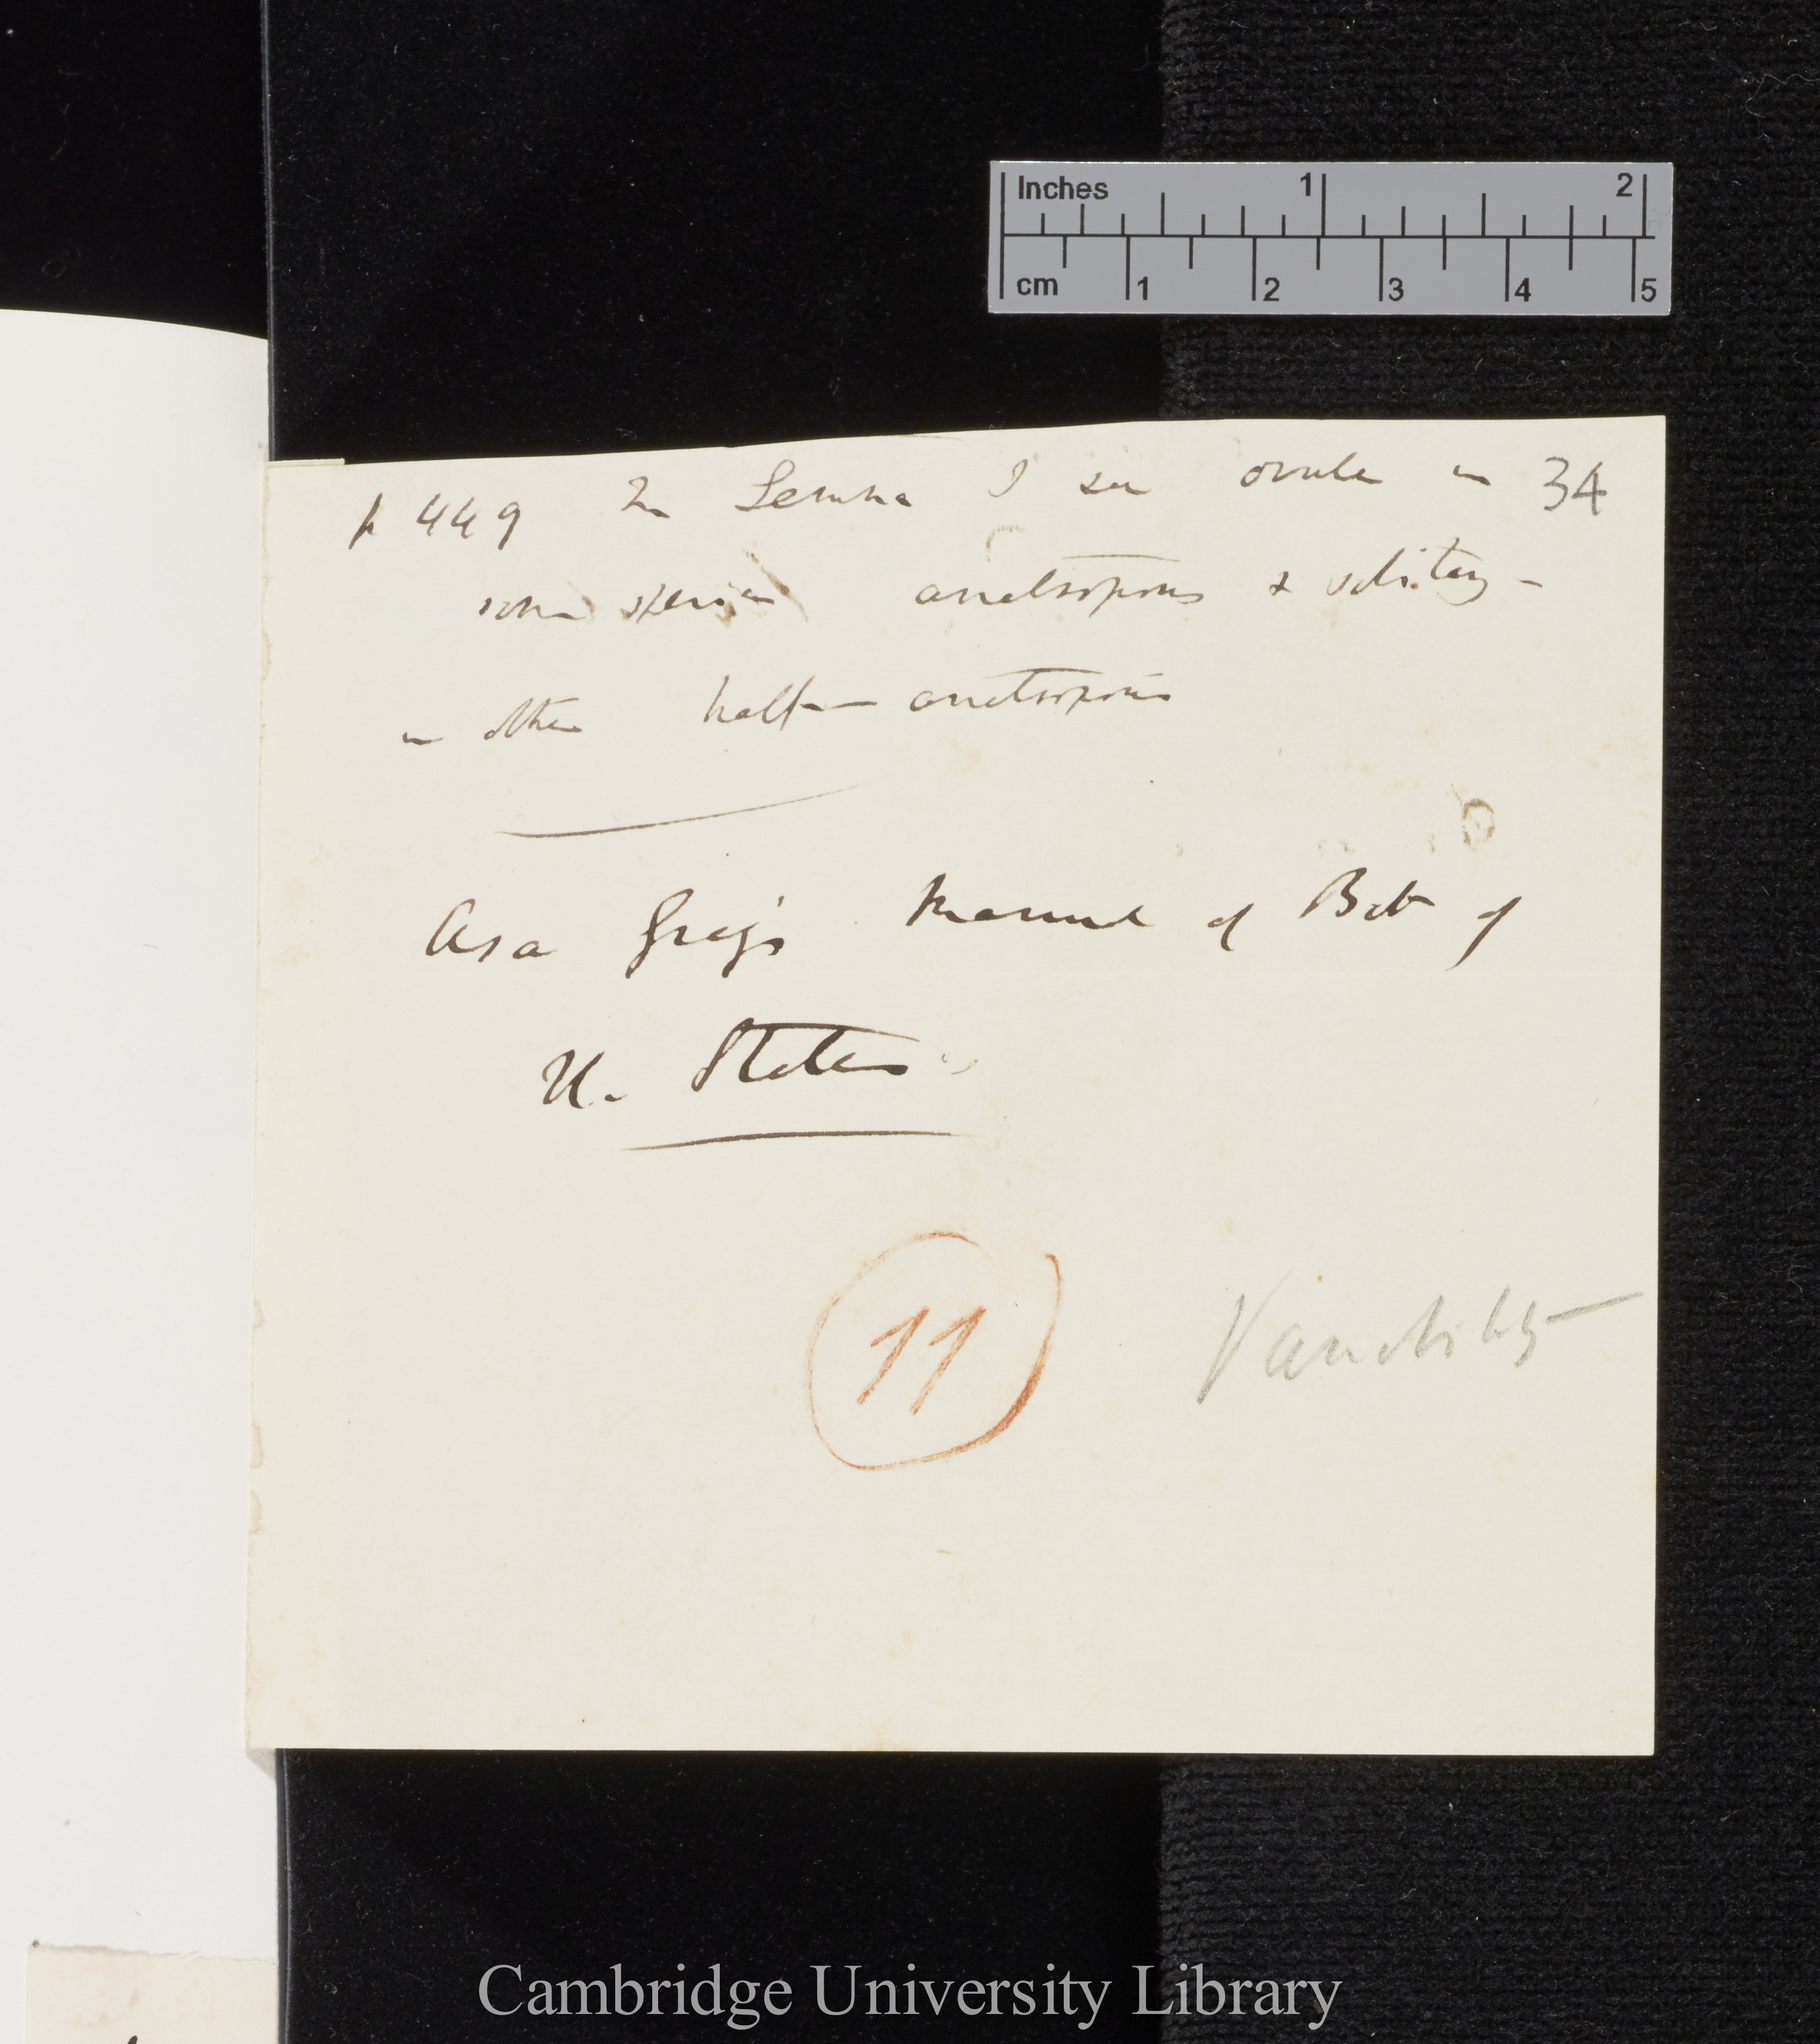 Inches 1 2
cm 1 2 3 4 5
34
p 449 In Lemna I see ovules in
some species anatropous & solitary –
in others half-anatropous
Asa Gray's Manual of Bot of
U. States
11
Variability
Cambridge University Library